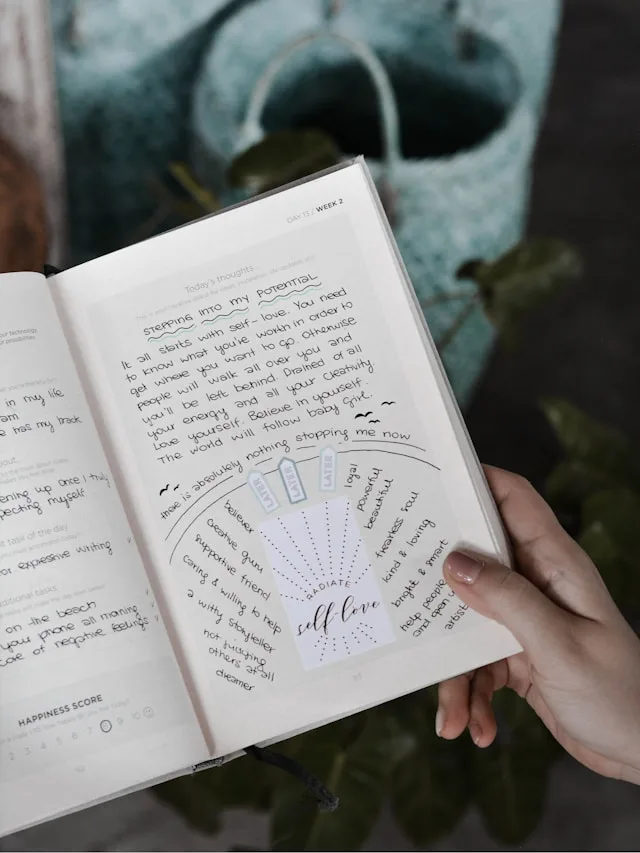 your technology
possibilities
in my life
am
e has my track
ening up once I truly
pecting myself
task of the day
or expressive writing
on the beach
your phone all morning
care of negative feelings
HAPPINESS SCORE
2 3 4 5 6 7 8 9 10
DAY 13 / WEEK 2
Today's thoughts
STEPPING INTO MY POTENTIAL
It all starts with self-love. You need
to know what you're worth in order to
get where you want to go. Otherwise
people will walk all over you and
you'll be left behind. Drained of all
your energy and all your creativity.
Love yourself. Believe in yourself.
The world will follow baby girl.
there is absolutely nothing stopping me now
LATER
LATER
LATER
believer
creative guru
supportive friend
caring & willing to help
a witty storyteller
not judging
others at all
dreamer
RADIATE
self love
loyal
powerful
beautiful
fearless soul
kind & loving
bright & smart
help people
and open
artist